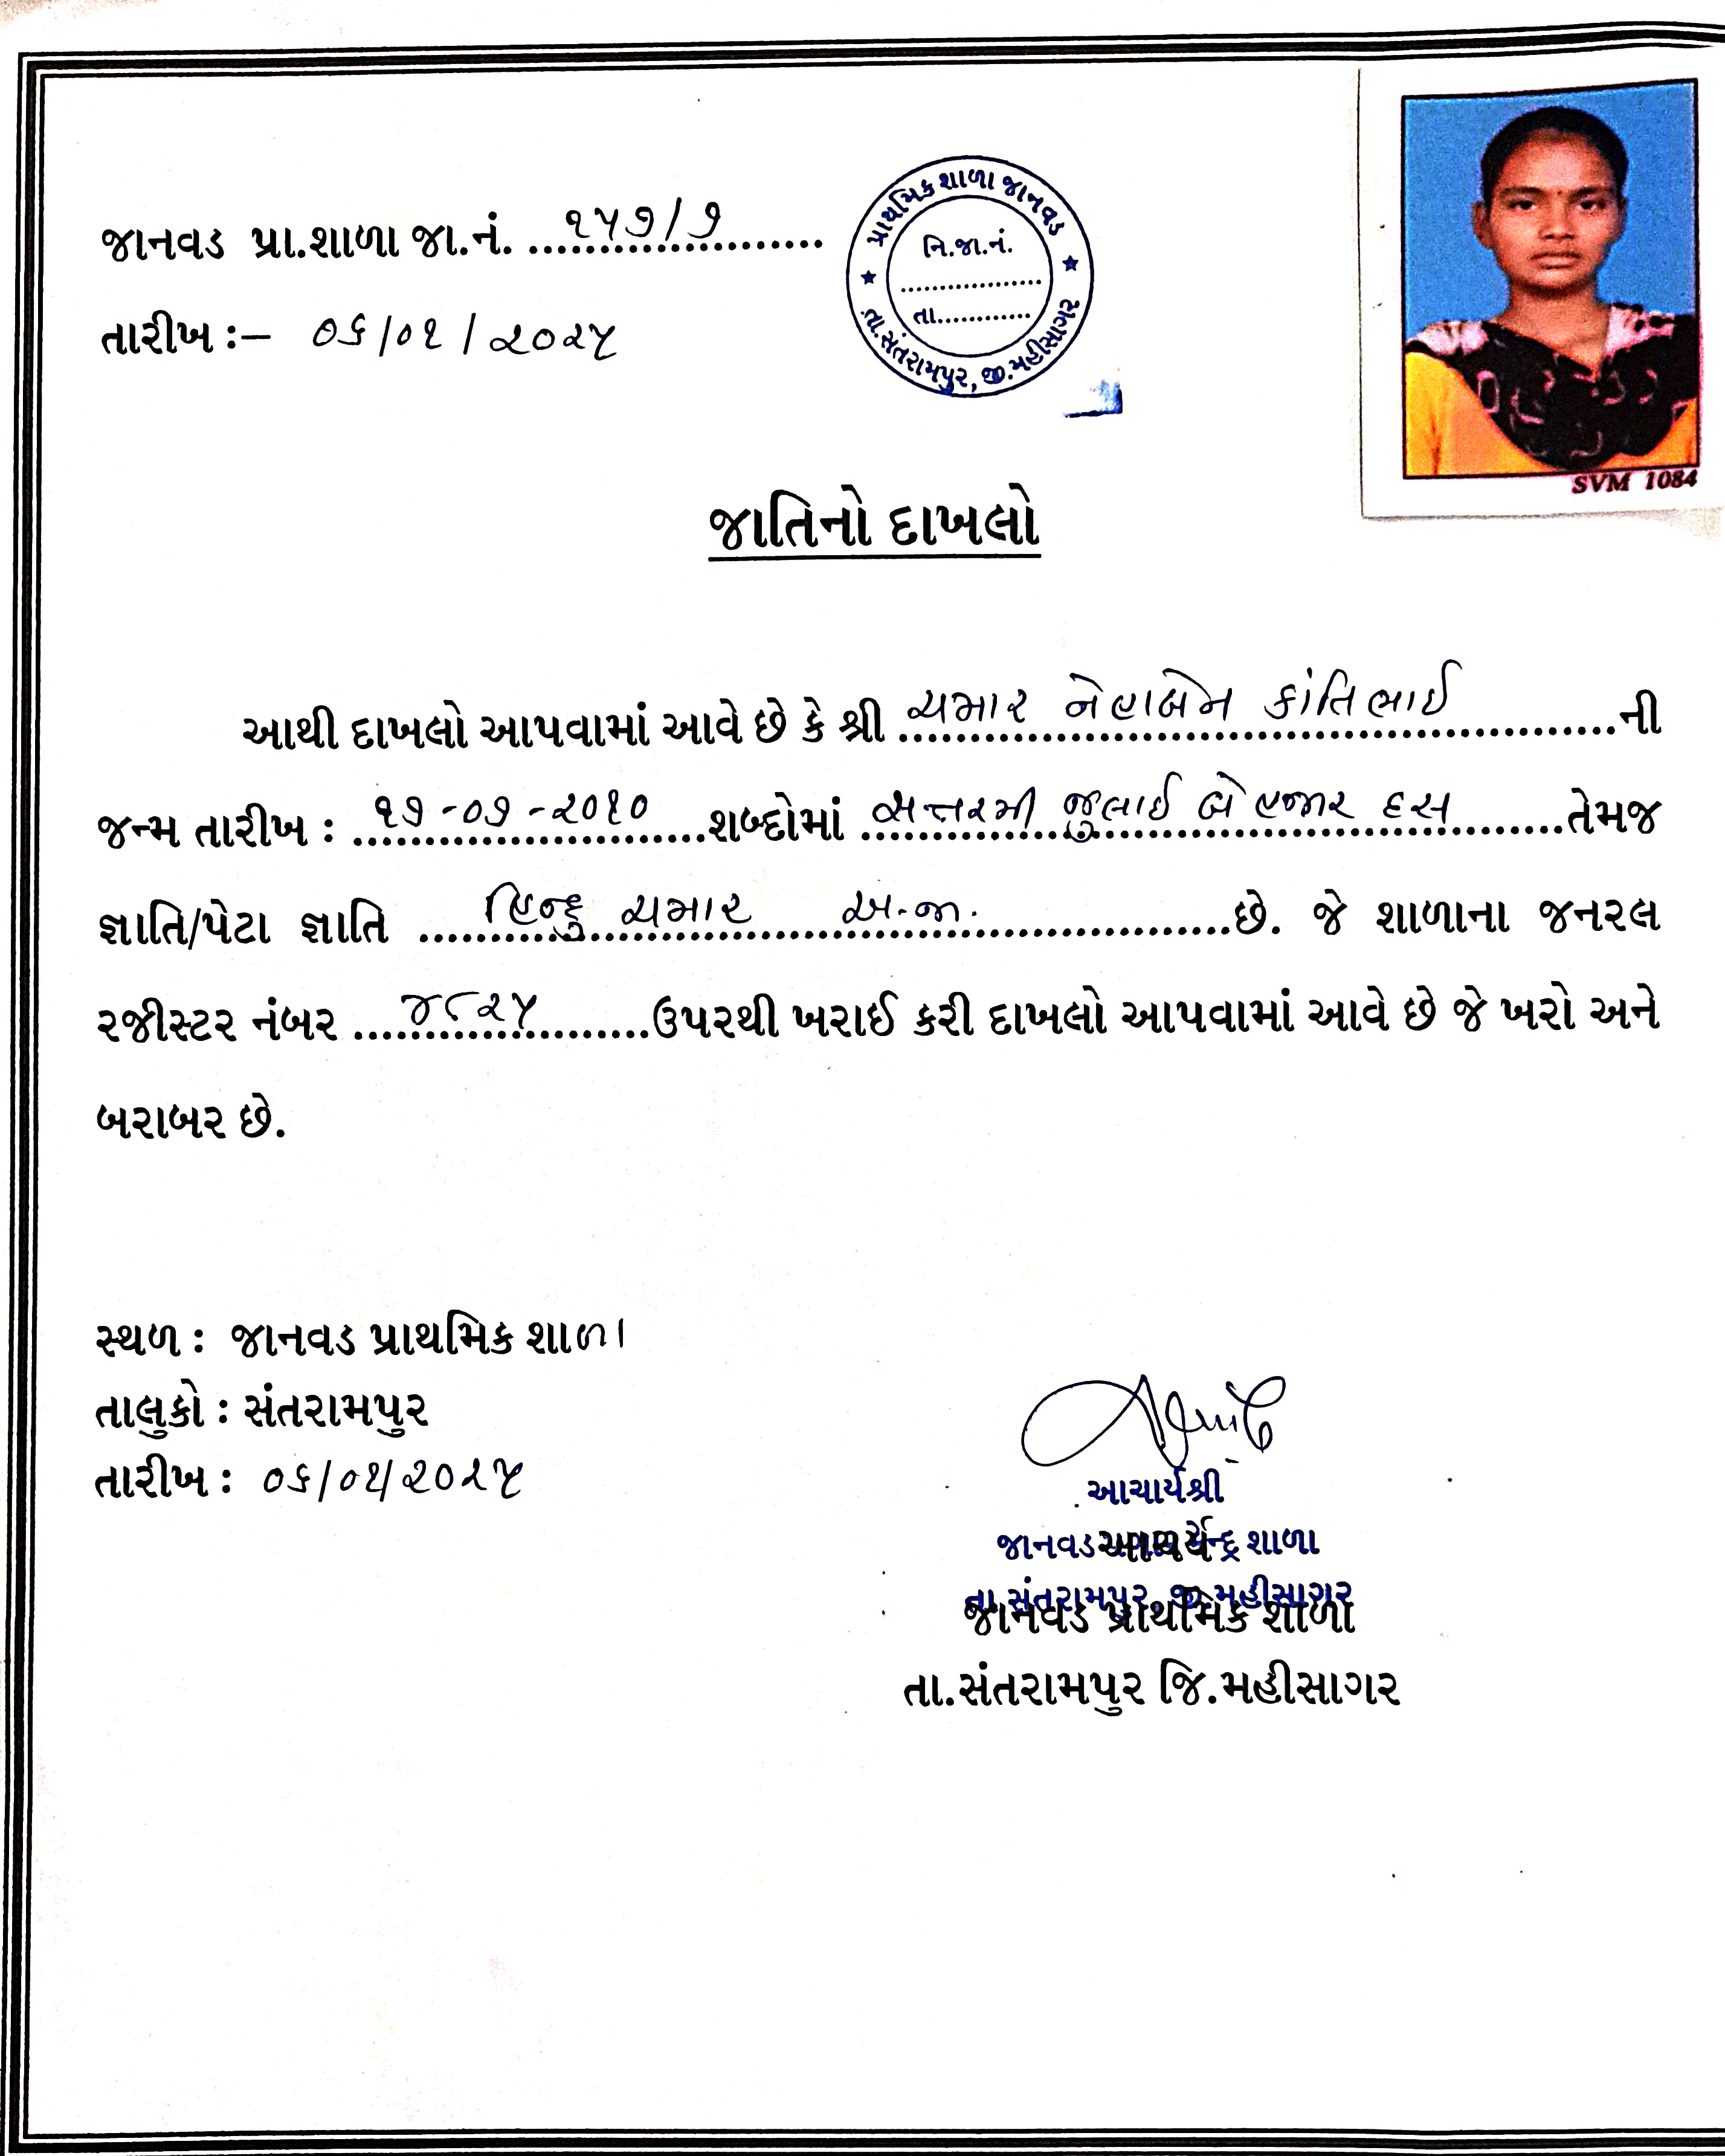 જાનવડ પ્રા.શાળા જા.નં. ..૧૫૭/૭..
તારીખ :– ૦૬/૦૧/૨૦૨૫
પ્રાથમિક શાળા જાનવડ
નિ.જા.નં.
તા............
તા.સંતરામપુર, જી.મહીસાગર
SVM 1084
જાતિનો દાખલો
આથી દાખલો આપવામાં આવે છે કે શ્રી ચમાર નેહાબેન કાંતિભાઈ ની
જન્મ તારીખ : ૧૭-૦૭-૨૦૧૦ શબ્દોમાં સત્તરમી જુલાઈ બે હજાર દસ તેમજ
જ્ઞાતિ/પેટા જ્ઞાતિ હિન્દુ ચમાર અ.જા. છે. જે શાળાના જનરલ
રજીસ્ટર નંબર ૪૮૨૫ ઉપરથી ખરાઈ કરી દાખલો આપવામાં આવે છે જે ખરો અને
બરાબર છે.
સ્થળ : જાનવડ પ્રાથમિક શાળા
તાલુકો : સંતરામપુર
તારીખ : ૦૬/૦૧/૨૦૨૫
આચાર્યશ્રી
જાનવડ કેન્દ્ર શાળા
આચાર્ય
તા.સંતરામપુર જી.મહીસાગર
જાનવડ પ્રાથમિક શાળા
તા.સંતરામપુર જિ.મહીસાગર